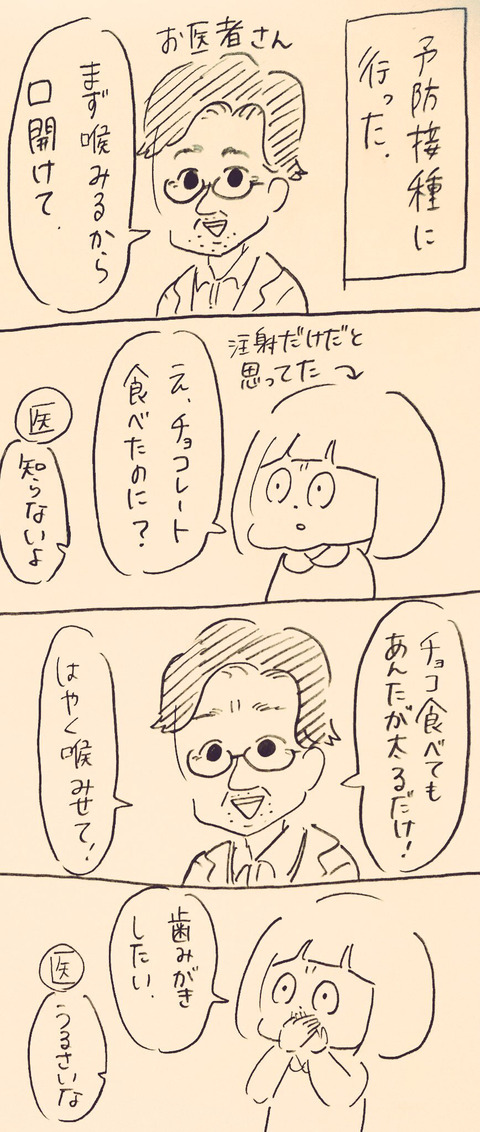 予防接種に
行った.
お医者さん
まず喉みるから
口開けて.
注射だけだと
思ってた
え、チョコレート
食べたのに?
医
知らないよ
チョコ食べても
あんたが太るだけ!
はやく喉みせて!
歯みがき
したい.
医
うるさいな